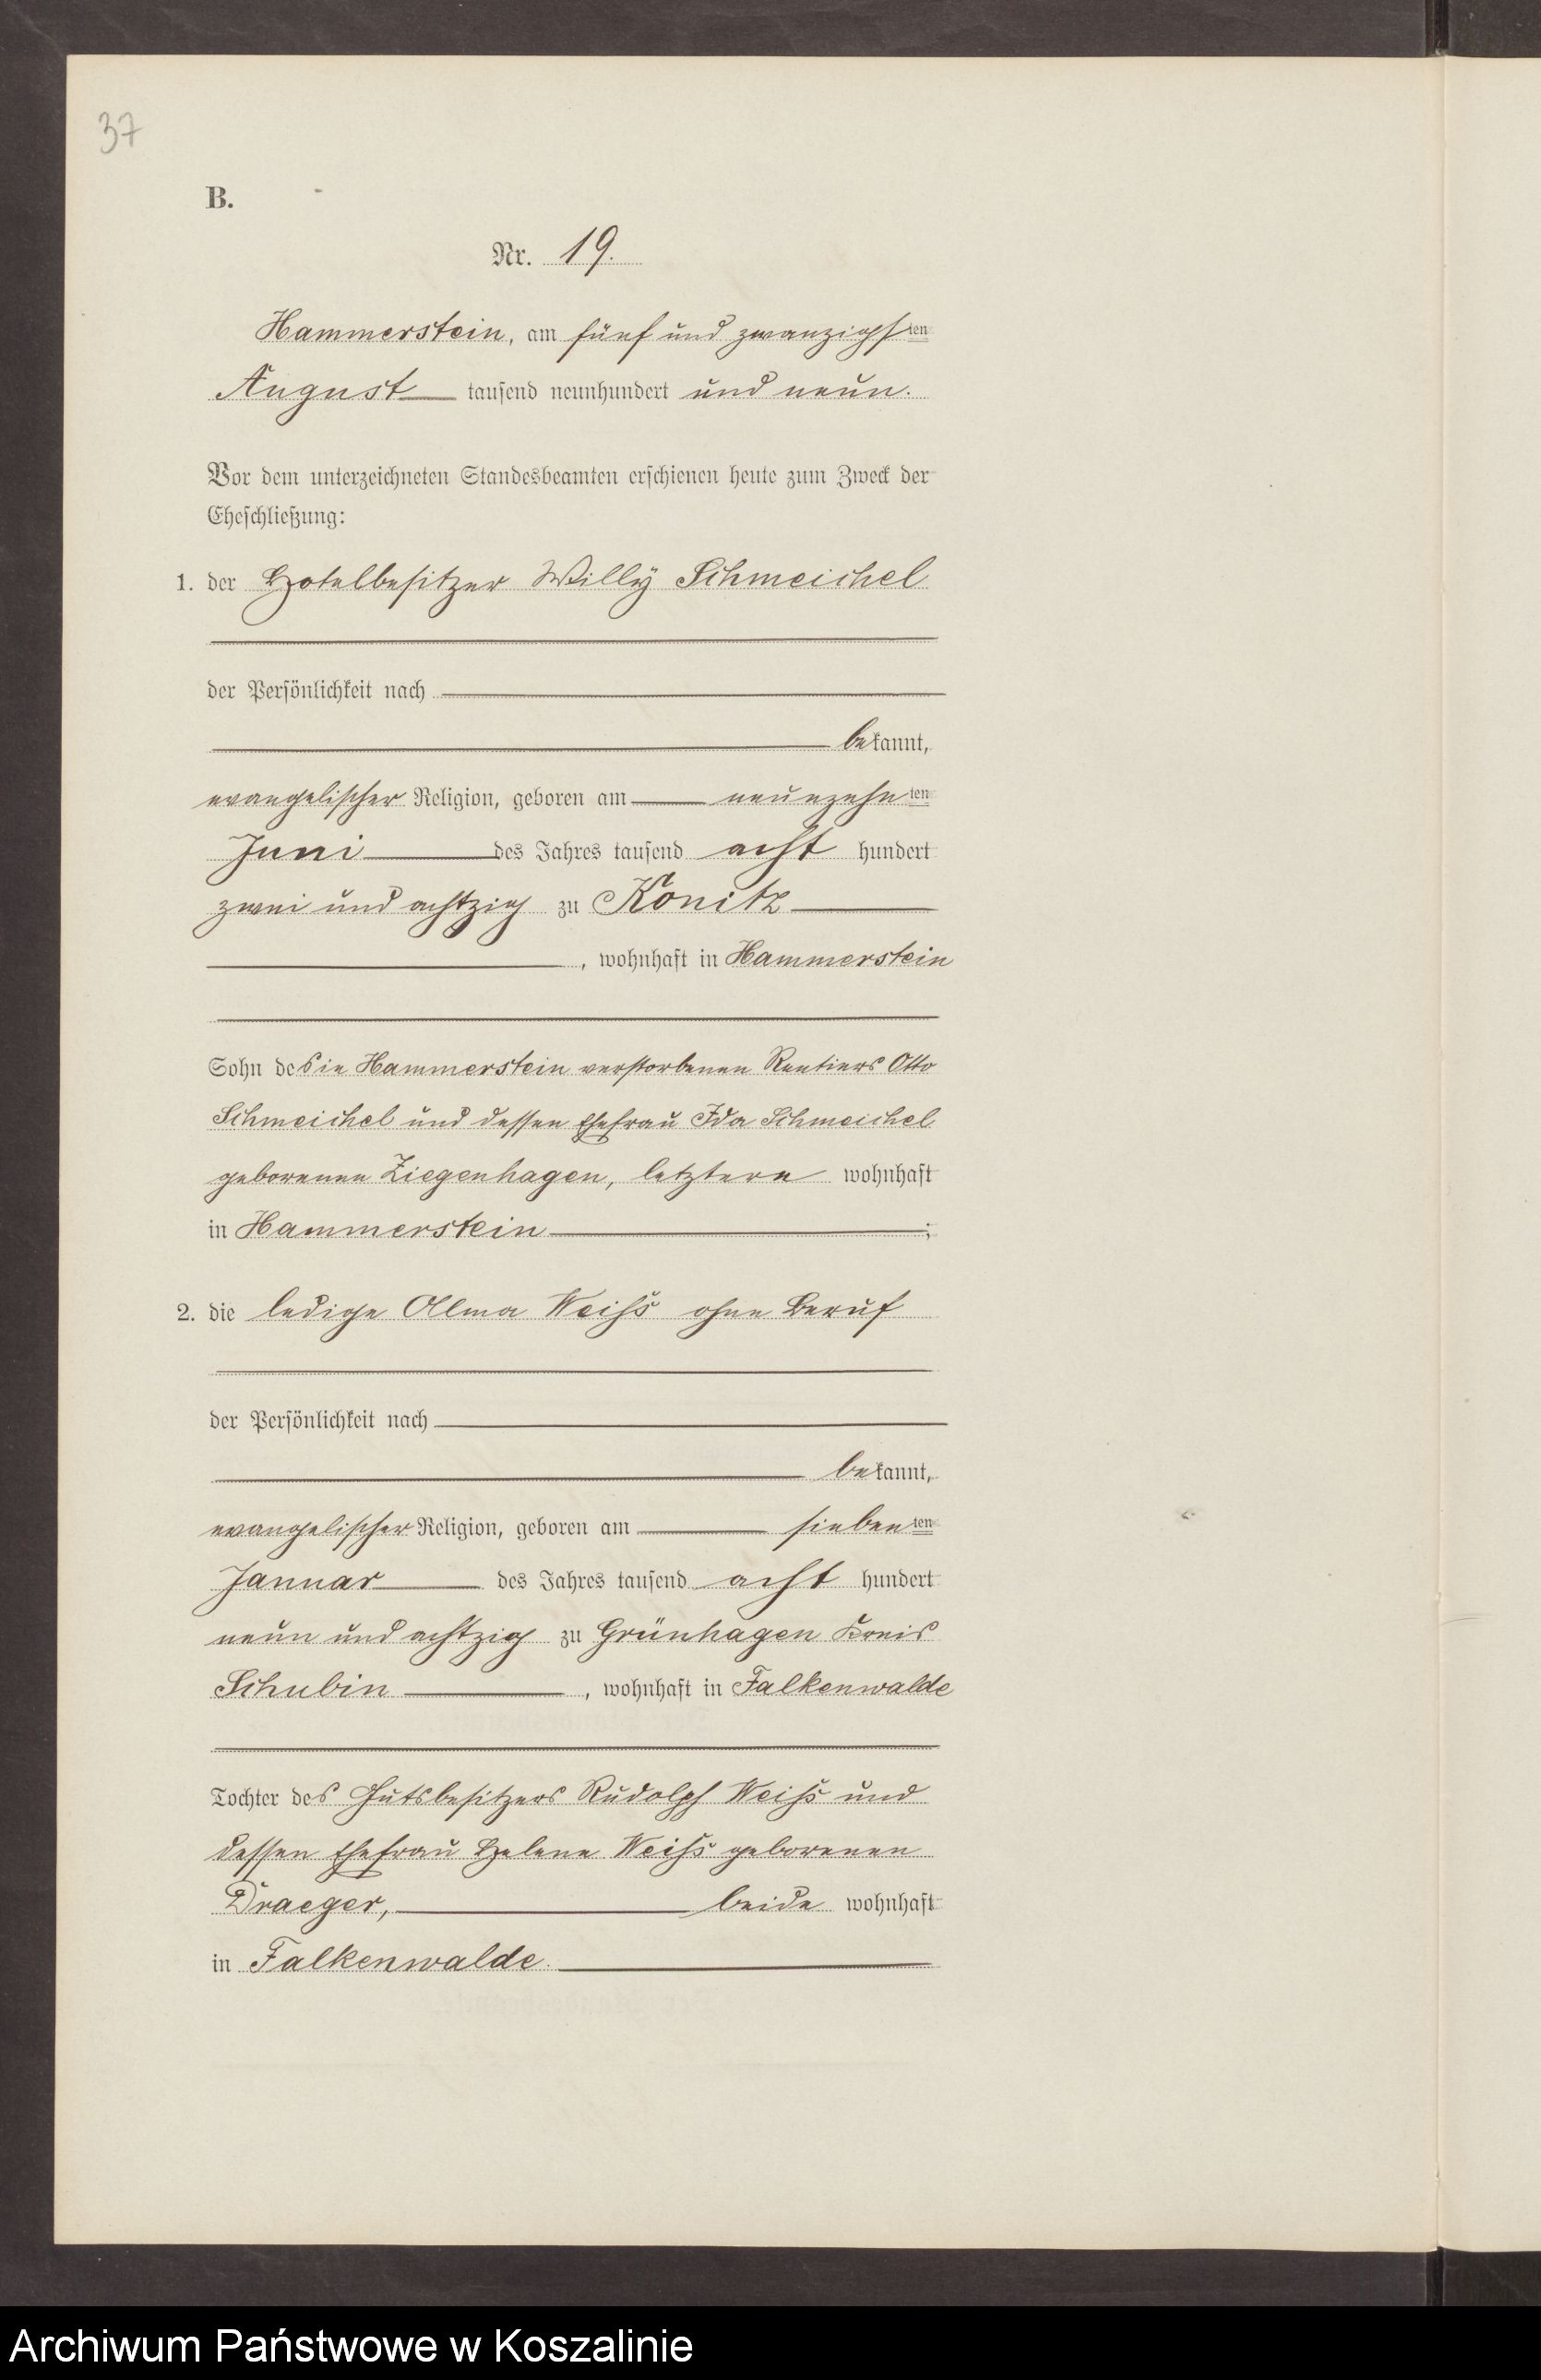 37
B.
Nr. 19.
Hammerstein, am fünf und zwanzigsten
August tausend neunhundert und neun.
Vor dem unterzeichneten Standesbeamten erschienen heute zum Zweck der
Eheschließung:
1. der Hotelbesitzer Willy Schmeichel
der Persönlichkeit nach
bekannt,
evangelischer Religion, geboren am neunzehnten
Juni des Jahres tausend acht hundert
zwei und achtzig zu Konitz
, wohnhaft in Hammerstein
Sohn des in Hammerstein verstorbenen Rentiers Otto
Schmeichel und dessen Ehefrau Ida Schmeichel
geborenen Ziegenhagen, letztere wohnhaft
in Hammerstein ;
2. die ledige Alma Weiß ohne Beruf
der Persönlichkeit nach
bekannt,
evangelischer Religion, geboren am siebenten
Januar des Jahres tausend acht hundert
neun und achtzig zu Grünhagen Kreis
Schubin , wohnhaft in Falkenwalde
Tochter des Gutsbesitzers Rudolph Weiß und
dessen Ehefrau Helene Weiß geborenen
Draeger, beide wohnhaft
in Falkenwalde.
Archiwum Państwowe w Koszalinie